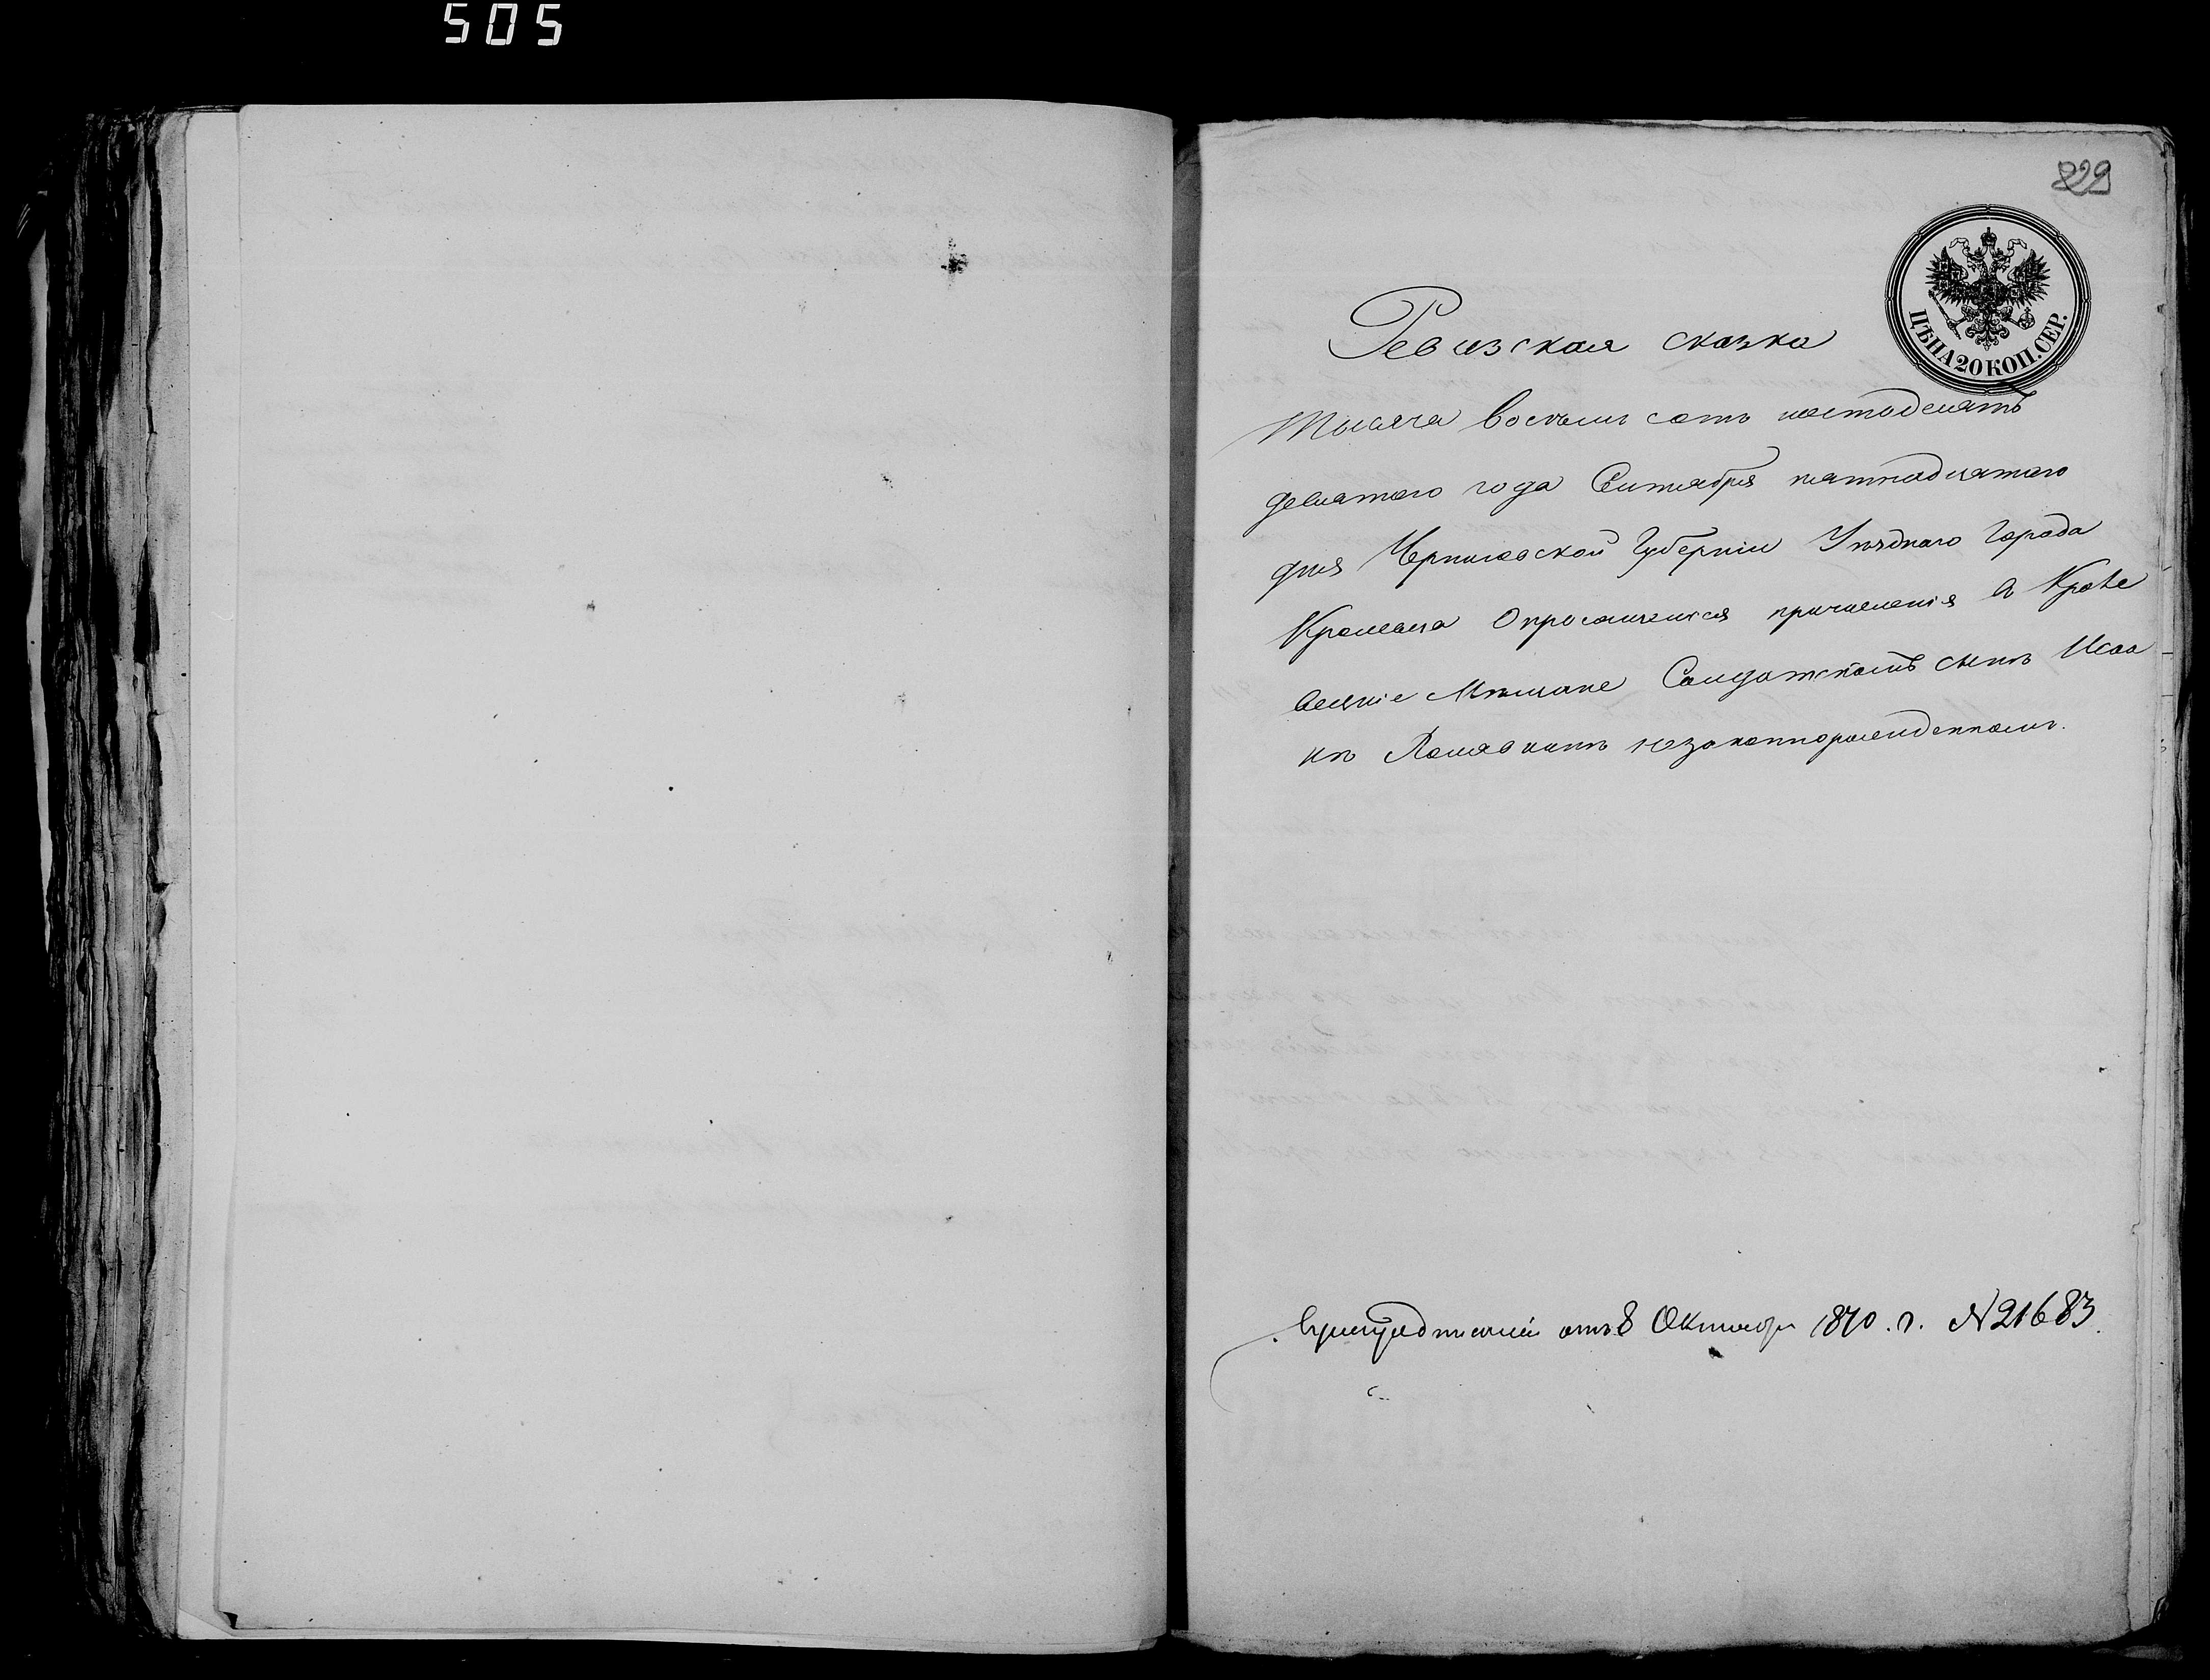 505
229
ЦѢНА 20 КОП. СЕР.
Ревизская сказка
Тысяча восемь сотъ шестьдесятъ
девятого года Сентября пятнадцатого
дня Черниговской Губерніи Уѣздного Города
Кролевца О причисленія в Кроле
вецкіе Мѣщане Солдатскомъ сынѣ Исаа
кѣ незаконнорожденномъ.
отъ 8 Октября 1870. г. № 21683.